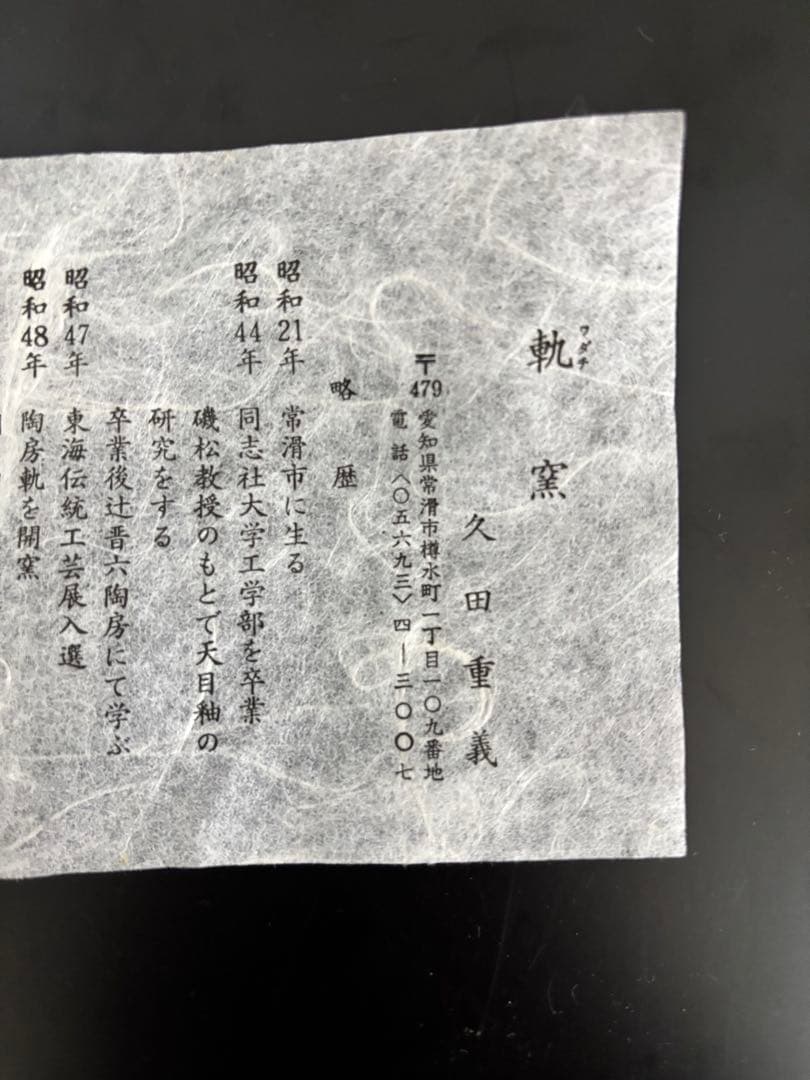 ワダチ
軌窯
久田重義
〒479 愛知県常滑市樽水町一丁目一〇九番地
電話〈〇五六九三〉四―三〇〇七
略歴
昭和21年 常滑市に生る
昭和44年 同志社大学工学部を卒業
磯松教授のもとで天目釉の
研究をする
卒業後辻晋六陶房にて学ぶ
昭和47年 東海伝統工芸展入選
昭和48年 陶房軌を開窯